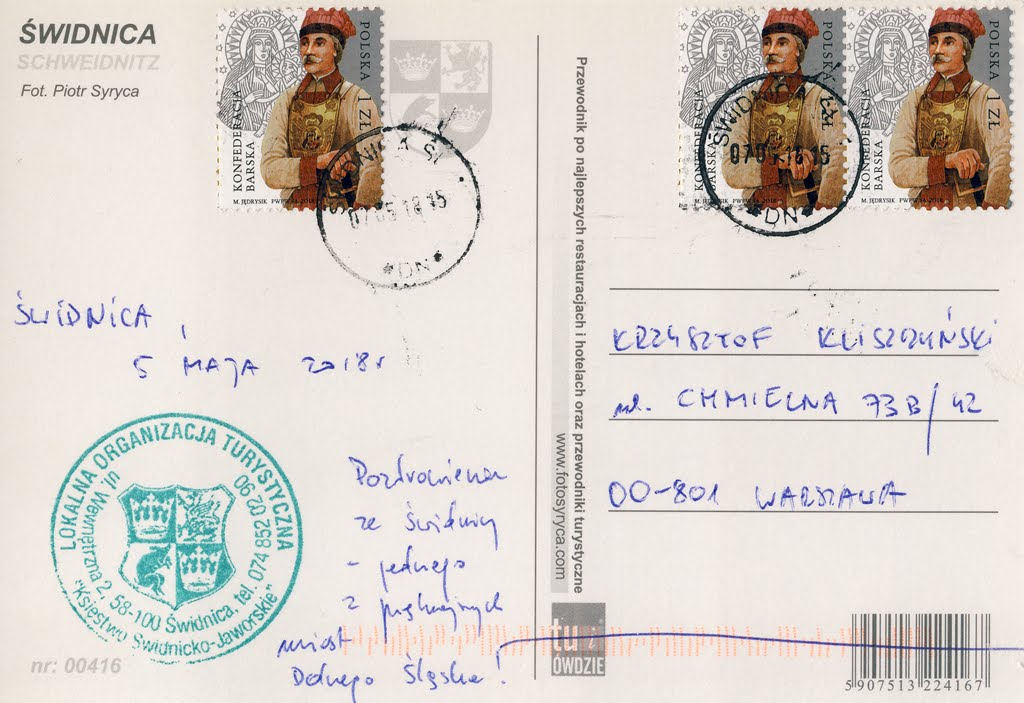 ŚWIDNICA
SCHWEIDNITZ
Fot. Piotr Syryca
KONFEDERACJA
BARSKA
POLSKA 1 ZŁ
M. JĘDRYSIK PWPW SA 2018
ŚWIDNICA ŚL.
07 05 18 15
*DN*
KONFEDERACJA
BARSKA
M. JĘDRYSIK PWPW SA 2018
KONFEDERACJA
BARSKA
POLSKA 1 ZŁ
M. JĘDRYSIK PWPW SA 2018
ŚWIDNICA
18 15
*DN*
ŚWIDNICA,
5 MAJA 2018r
LOKALNA ORGANIZACJA TURYSTYCZNA
ul. Wewnętrzna 2, 58-100 Świdnica, tel. 074 852 02 90
"Księstwo Świdnicko-Jaworskie"
Pozdrowienia
ze Świdnicy
- jednego
z piękniejszych
miast
Dolnego Śląska!
nr: 00416
Przewodnik po najlepszych restauracjach i hotelach oraz przewodniki turystyczne
www.fotosyryca.com
tu i
OWDZIE
KRZYSZTOF KLISZCZYŃSKI
ul. CHMIELNA 73B/42
00-801 WARSZAWA
5 907513 224167